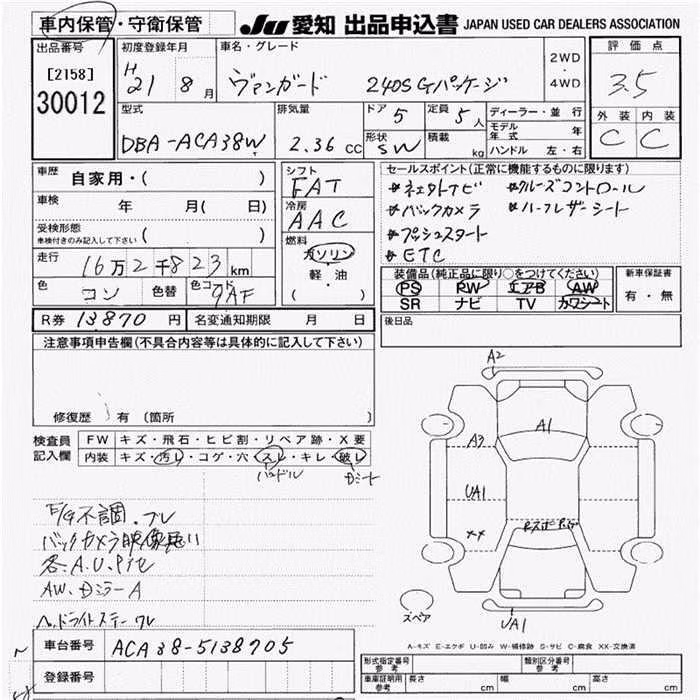 車内保管・守衛保管 JU 愛知 出品申込書 JAPAN USED CAR DEALERS ASSOCIATION
出品番号 初度登録年月 車名・グレード 2WD・4WD 評価点
[2158] 30012 H21 8月 ヴァンガード 240S Gパッケージ 3.5
型式 排気量 ドア 5 定員 5人 ディーラー・並行 外装 内装
DBA-ACA38W 2.36 CC 形状 SW 積載 kg モデル年式 年 C C
ハンドル 左・右
車歴 自家用・( ) シフト FAT セールスポイント(正常に機能するものに限ります)
車検 年 月( 日) 冷房 AAC
バックカメラ ハーフレザーシート
受検形態 車検付きのみ記入して下さい ( ) プッシュスタート
燃料 ガソリン 軽・油 ( ) ETC
走行 16万2千823km 装備品(純正品に限り○をつけてください) 新車保証書
色 コン 色替 色コード 9AF PS PW エアB AW 有・無
SR ナビ TV カワシート
R券 13870円 名変通知期限 月 日 後日品
注意事項申告欄(不具合内容等は具体的に記入して下さい)
修復歴 有 (箇所 )
検査員記入欄 FW キズ・飛石・ヒビ割・リペア跡・X要
内装 キズ・汚レ・コゲ・穴・スレ・キレ・破レ
ハンドル Dシート
A2
A1
A3
UA1
XX
スペア
UA1
不調
バックカメラ映像
各A.U.P.ヒセ
AW.DミラーA
ヘッドライトステーワレ
A-キズ E-エクボ U-凹み W-補修跡 S-サビ C-腐食 XX-交換済
車台番号 ACA38-5138705
登録番号
形式指定番号 参考 類別区分番号 参考
車庫証明用 参考 長さ cm 幅 cm 高さ cm